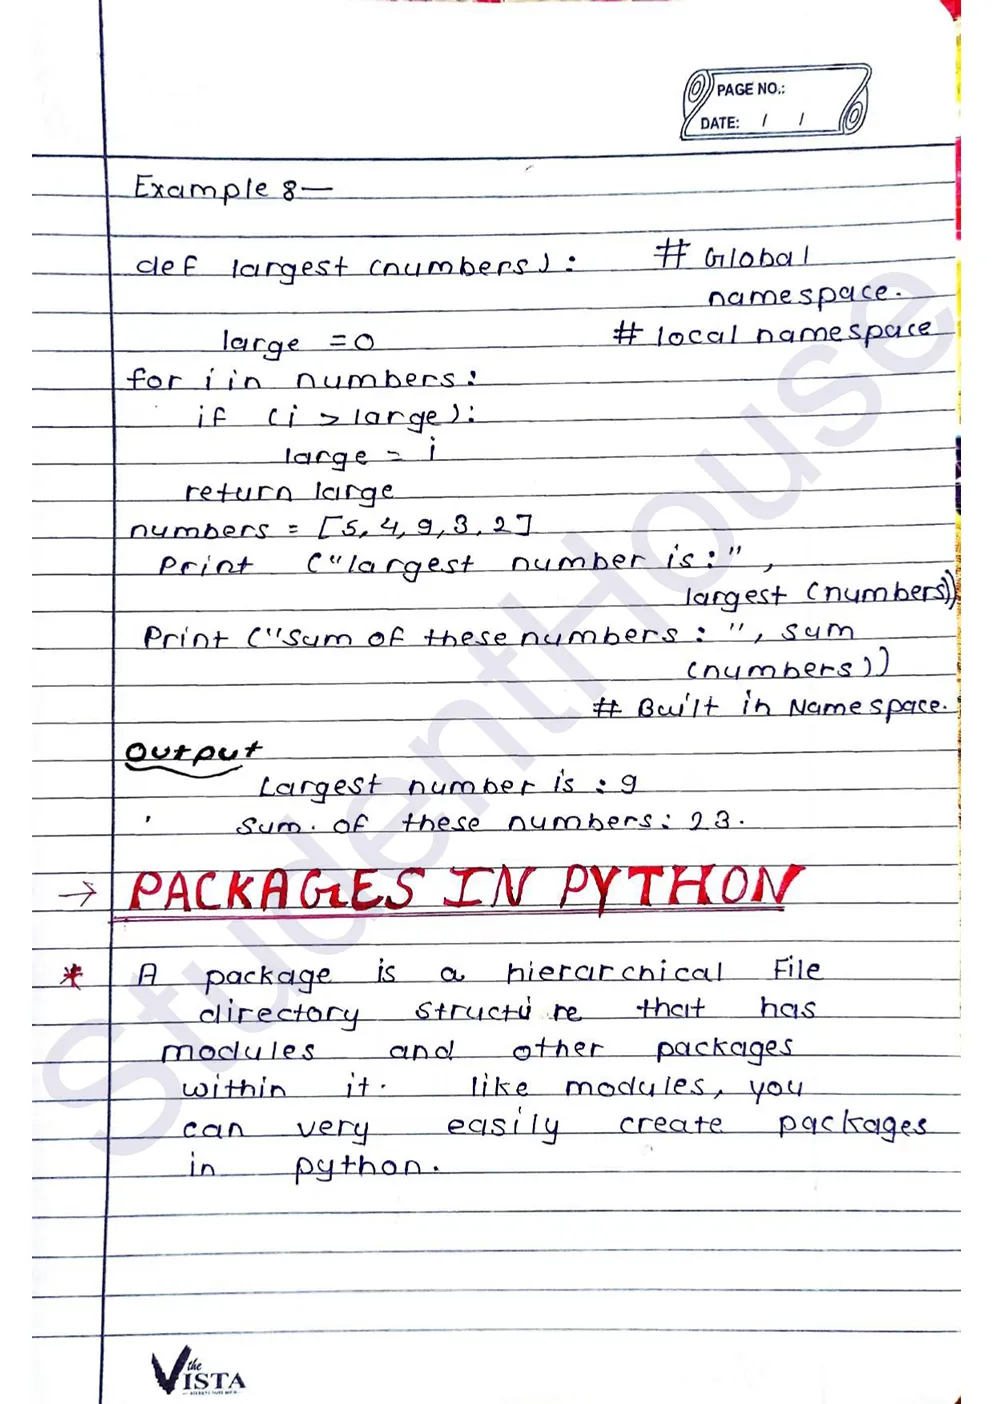 PAGE NO.:
DATE: / /
Example 8—
def largest (numbers): # Global
namespace.
large = 0 # local namespace
for i in numbers:
if (i > large):
large = i
return large
numbers = [5, 4, 9, 3, 2]
Print ("largest number is:",
largest (numbers))
Print ("Sum of these numbers : ", sum
(numbers))
# Built in Namespace.
Output
Largest number is : 9
Sum. of these numbers: 23.
→ PACKAGES IN PYTHON
* A package is a hierarchical File
directory structure that has
modules and other packages
within it. like modules, you
can very easily create packages
in python.
the
VISTA
StudentHouse